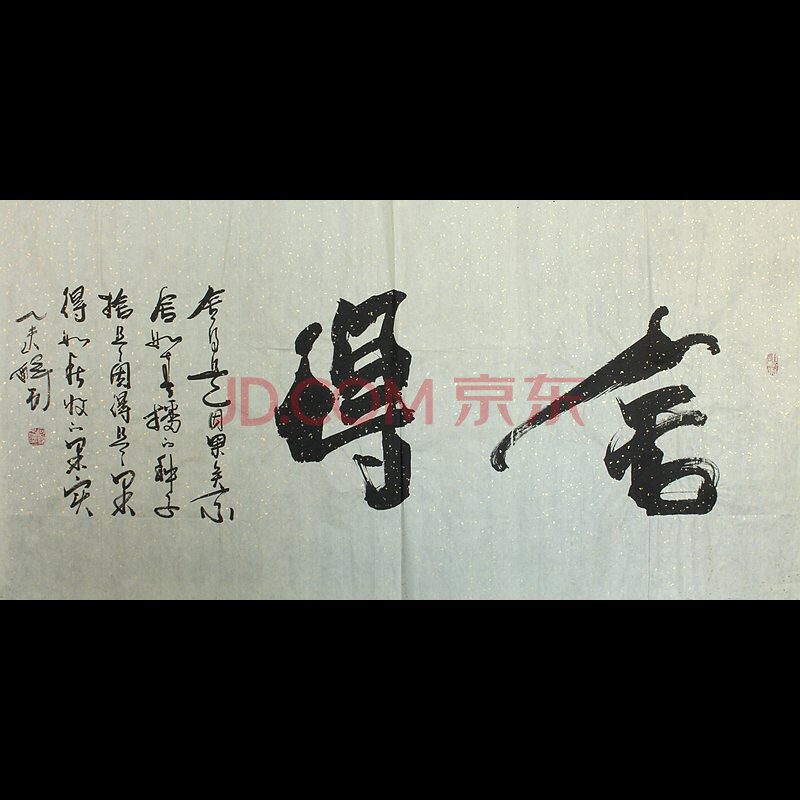 舍得
舍得是因果关系
舍如春播的种子
捨是因得是果
得如秋收的果实
乙未
JD.COM 京东